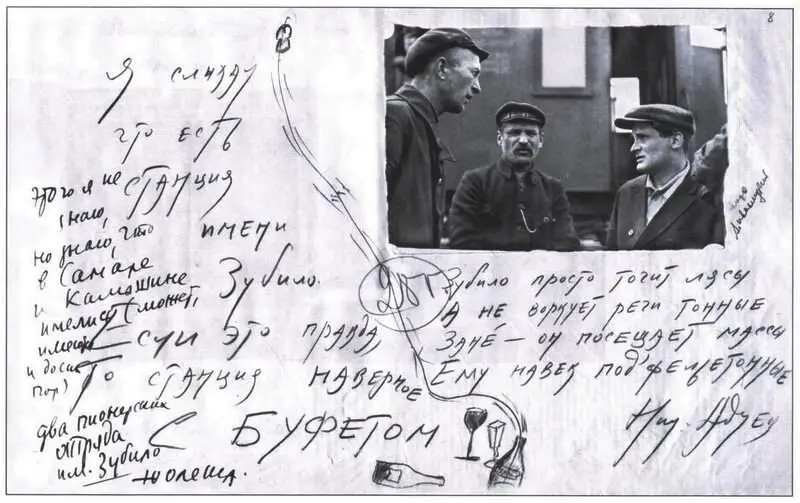 8
Я слыхал
что есть
станция
имени
Зубило.
Если это правда,
То станция наверное
С БУФЕТОМ
Этого я не
знаю,
но знаю, что
в Самаре
и Камышине
имелись (может,
имеются
и до сих
пор)
два пионерских
отряда
им. Зубило
Юолеша.
Зубило просто точит лясы
А не воркует речи тонные
Зане — он посещает массы
Ему навек под'фельетонные